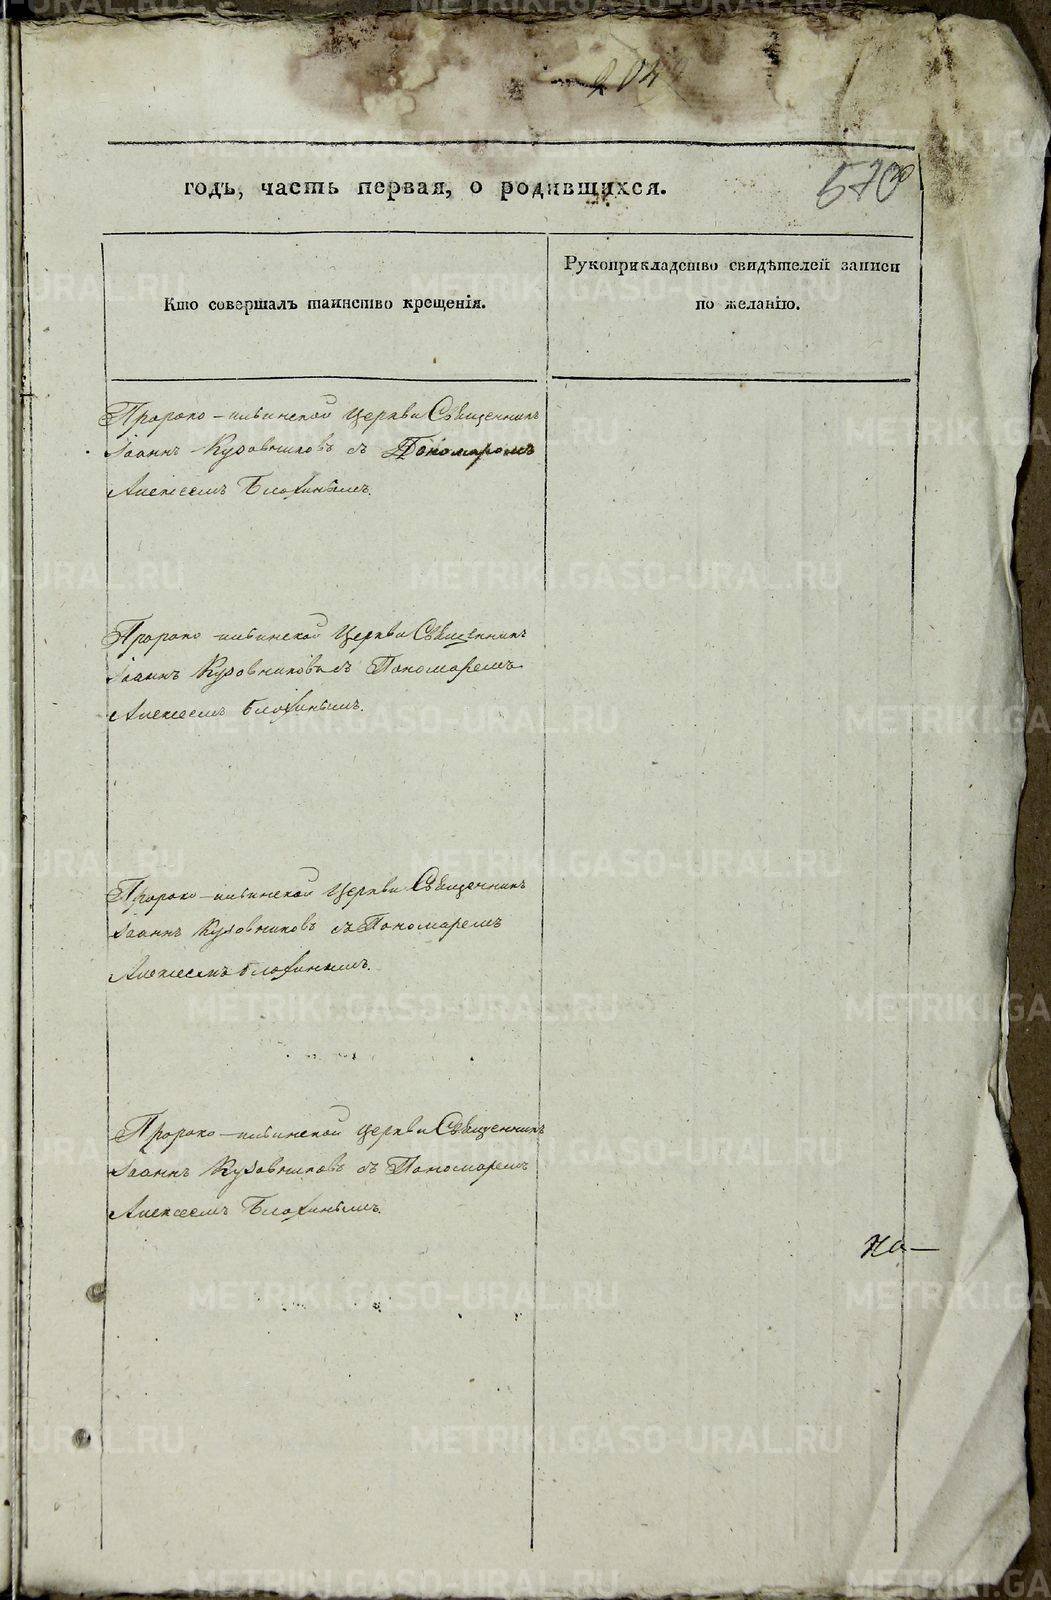 204
570
годъ, часть первая, о родившихся.
Кто совершалъ таинство крещенія.
Рукоприкладство свидѣтелей записи
по желанію.
Пророко-ильинской Церкви Священникъ
Іоаннъ Кузовниковъ съ Пономаремъ
Алексеемъ Блохинымъ.
Пророко-ильинской Церкви Священникъ
Іоаннъ Кузовниковъ съ Пономаремъ
Алексеемъ Блохинымъ.
Пророко-ильинской Церкви Священникъ
Іоаннъ Кузовниковъ съ Пономаремъ
Алексеемъ Блохинымъ.
Пророко-ильинской церкви Священникъ
Іоаннъ Кузовниковъ съ Пономаремъ
Алексеемъ Блохинымъ.
На—
METRIKI.GASO-URAL.RU